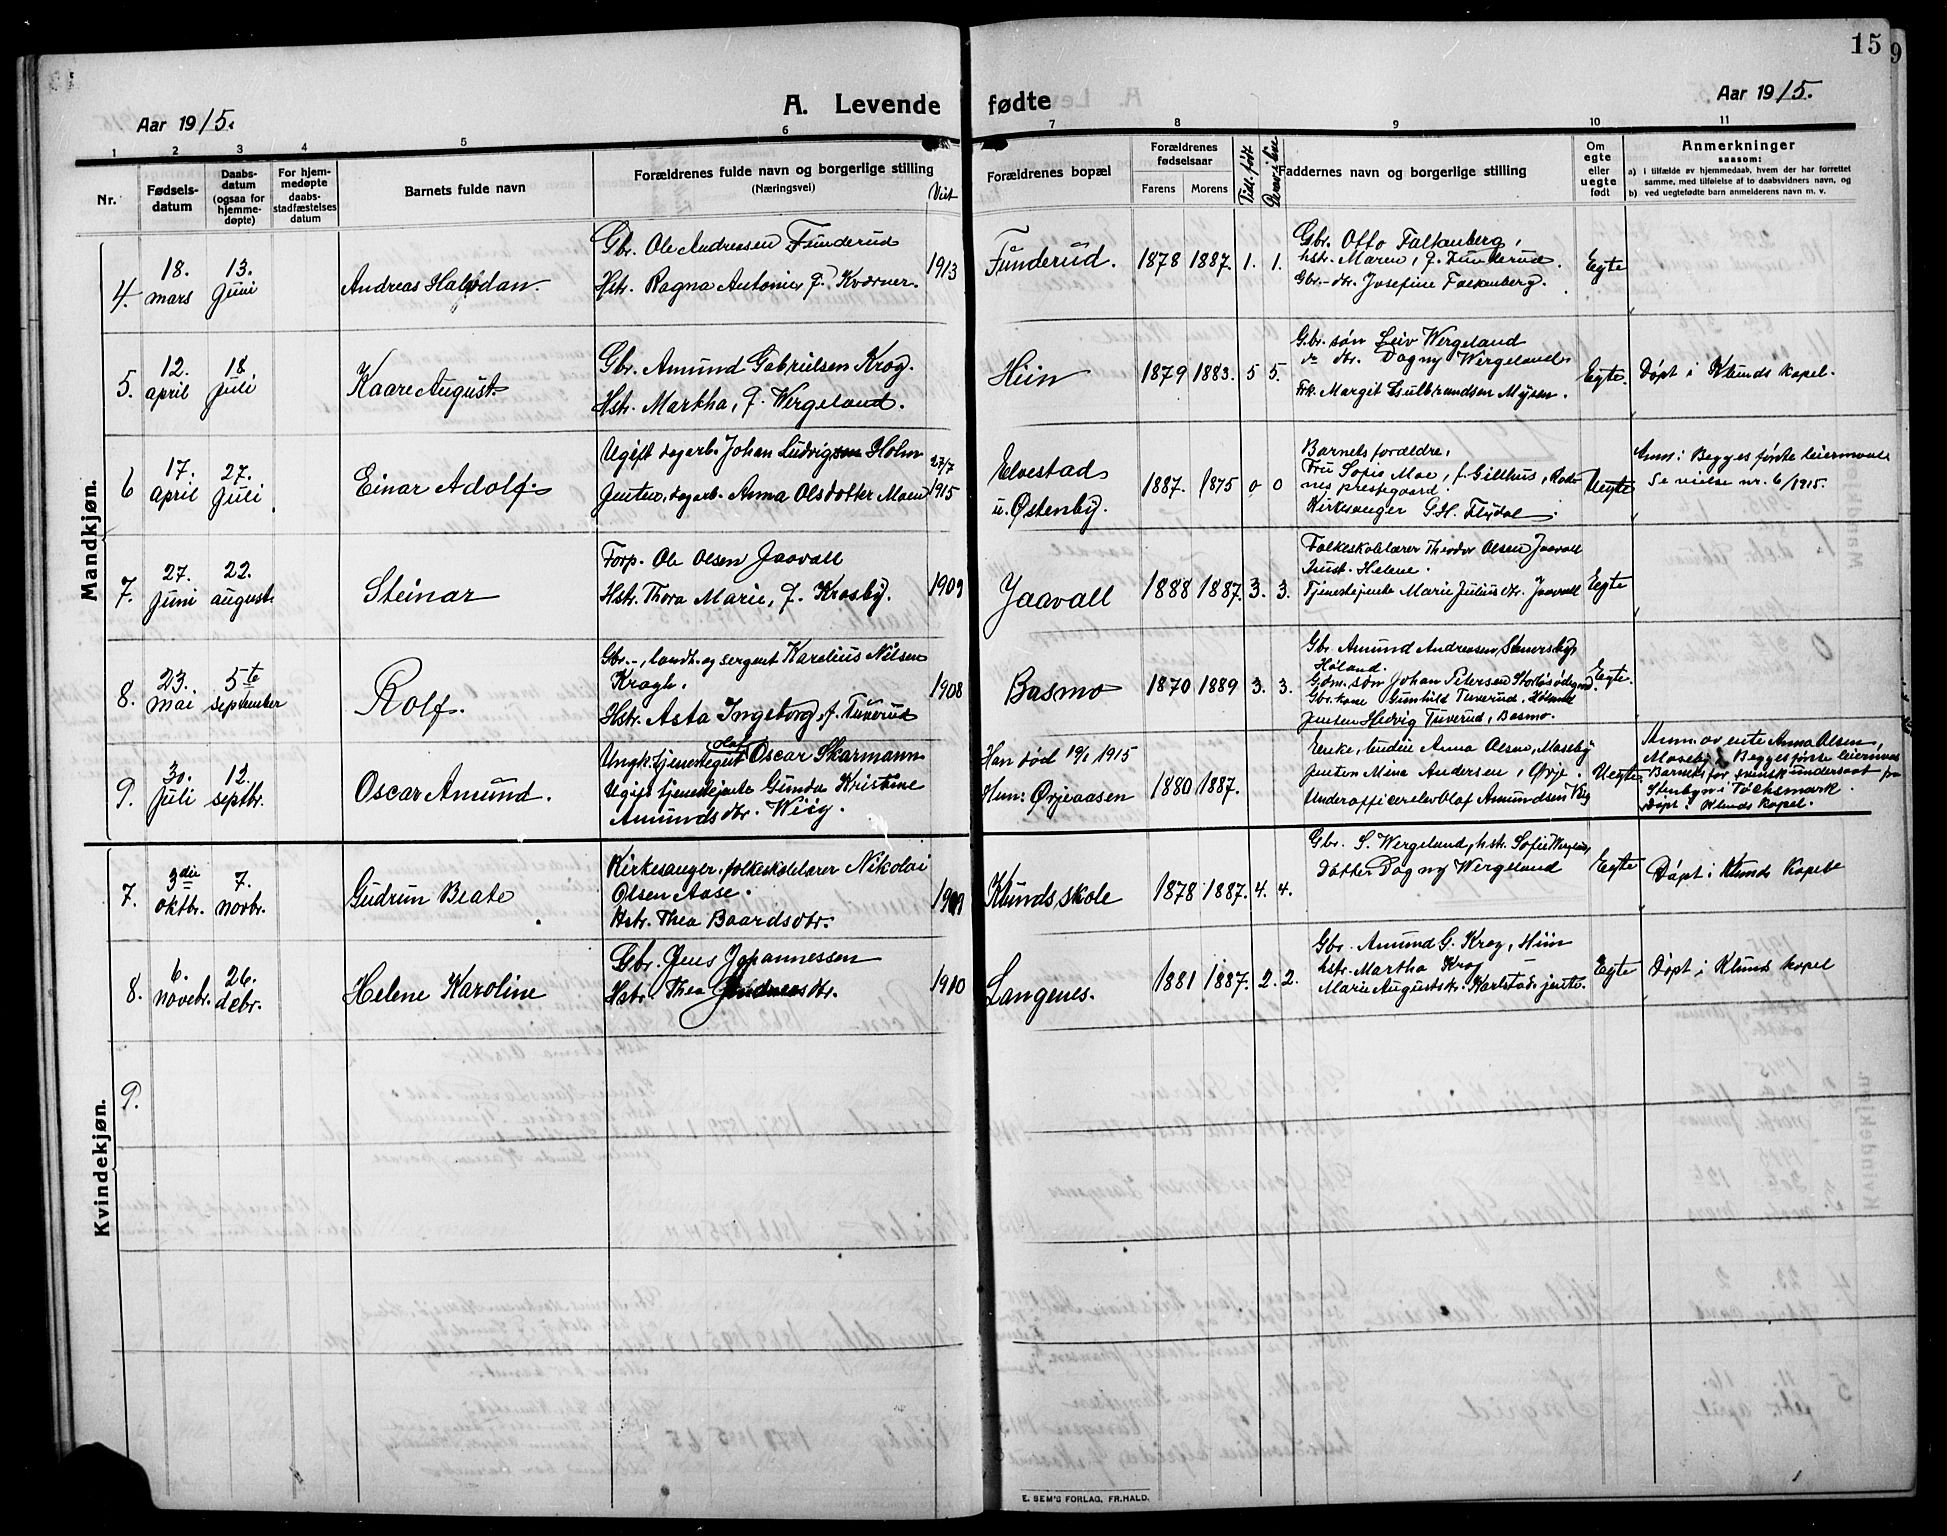 15
9
A. Levende fødte
Aar 1915.
Aar 1915.
1 2 3 4 5 6 7 8 9 10 11
Nr.
Fødselsdatum
Daabsdatum (ogsaa for hjemmedøpte)
For hjemmedøpte daabsstadfæstelses datum
Barnets fulde navn
Forældrenes fulde navn og borgerlige stilling
(Næringsvei)
Viet
Forældrenes bopæl
Forældrenes fødselsaar
Farens
Morens
Tidl. født
Derav i live
Faddernes navn og borgerlige stilling
Om egte eller uegte født
Anmerkninger
saasom:
a) i tilfælde av hjemmedaab, hvem der har forrettet
samme, med tilføielse af to daabsvidners navn, og
b) ved uegtefødte barn anmelderens navn m. v.
Mandkjøn.
4. 18. mars
13. Juni
Andreas Halvdan.
Gbr. Ole Andreasen Funderud
Hstr. Ragna Antonie f. Kværner.
1913
Funderud.
1878 1887. 1. 1.
Gbr. Otto Falkenberg,
hstr. Maren, f. Funderud.
Gbr.-dtr. Josefine Falkenberg.
Egte
5. 12. april
18. Juli
Kaare August.
Gbr. Amund Gabrielsen Krog.
Hstr. Martha, f. Wergeland.
Hiin
1879 1883. 5 5.
Gbr. søn Leiv Wergeland
dtr. Dagny Wergeland
Frk. Margit Gulbrandsen Mysen.
Egte.
Døpt i Klunds kapel.
6 17. april
27. Juli
Einar Adolf.
Ugift dagarb. Johan Ludvigsen Holm
Jenten, dagarb. Anna Olsdotter Moen
27/7 1915
Elvestad
u. Østenby.
1887. 1875 0 0
Barnets forældre,
Fru Sofie Moe, f. Gillhus, Rødenes prestegaard.
Kirkesanger G. H. Flydal.
Uegte
Anm: Begges første leiermaal
Se vielse nr. 6/1915.
7. 27. Juni
22. august.
Steinar
Forp. Ole Olsen Jaavall
Hstr. Thora Marie, f. Krosby.
1909
Jaavall
1888 1887. 3. 3.
Folkeskolelærer Theodor Olsen Jaavall
Hust. Helene.
Tjenestejente Marie Julius dtr. Jaavall
Egte
8. 23. mai
5te september
Rolf.
Gbr.-, landh. og sergent Karelius Nilsen
Krogh.
Hstr. Asta Ingeborg f. Tuverud
1908
Basmo
1870 1889 3. 3.
Gbr. Amund Andreasen,
Høland.
Gdm. søn Johan Petersen
Gbr. kone Gunhild Tuverud, Høland
Jenten Hedvig Tuverud, Basmo.
Egte.
9. 30. Juli
12. septbr.
Oscar Amund.
Ungk. tjenestegut Olaf Oscar Skarmann
Ugift tjenestejente Gunda Kristine
Amunds dtr. Wiig.
Han død 19/6 1915
Hun: Ørjeaasen
1880 1887.
Enke, Anna Olsen, Moseby
Jenten Mina Andersen, Ørje.
Underofficerelev Olaf Amundsen Viig
Uegte
Anm. av enke Anna Olsen,
Moseby. Begges første leiermaal
Barnets far svensk undersaat fra
Stenbyn i Töcksmark.
Døpt i Klunds kapel.
Kvindekjøn.
7. 3die oktbr.
7. novbr.
Gudrun Beate
Kirkesanger, folkeskolelærer Nikolai
Olsen Aase.
Hstr. Thea Baardsdtr.
1909
Klunds skole
1878 1887. 4. 4.
Gbr. S. Wergeland, hstr. Sofie Wergeland,
Datter Dagny Wergeland
Egte
Døpt i Klunds Kapel
8. 6. novebr.
26. debr.
Helene Karoline
Gbr. Jens Johannessen
Hstr. Thea Andreasdtr.
1910
Langenes.
1881 1887. 2. 2.
Gbr. Amund G. Krog, Hiin
hstr. Martha Krog
Marie Augustdtr. Karlstad, jente.
Egte
Døpt i Klunds Kapel
9.
E. SEM'S FORLAG, FR.HALD.